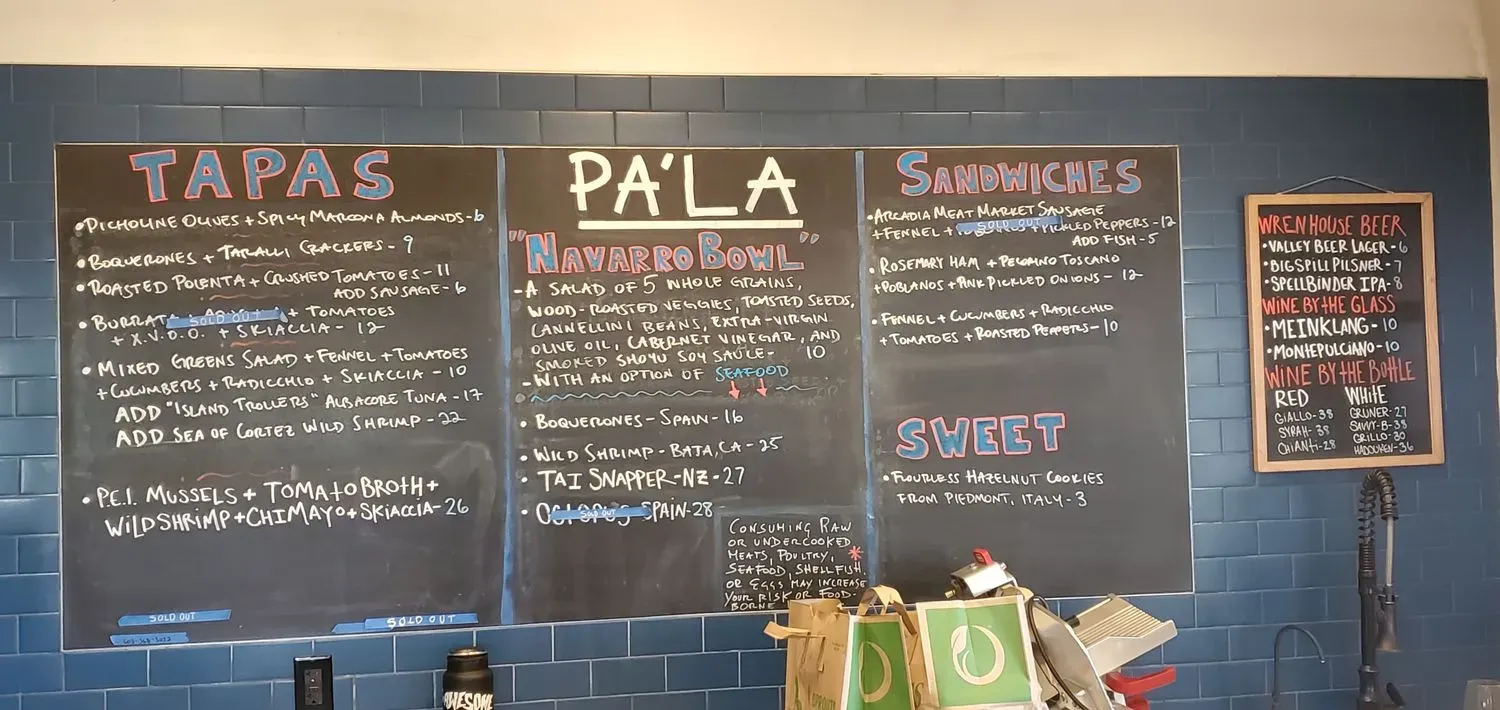 TAPAS
•PICHOLINE OLIVES + SPICY MARCONA ALMONDS-6
•BOQUERONES + TARALLI CRACKERS - 9
•ROASTED POLENTA + CRUSHED TOMATOES - 11
ADD SAUSAGE - 6
•BURRATA + TOMATOES
SOLD OUT
+ X.V.O.O. + SKIACCIA - 12
•MIXED GREENS SALAD + FENNEL + TOMATOES
+CUCUMBERS + RADICCHIO + SKIACCIA - 10
ADD "ISLAND TROLLERS" ALBACORE TUNA - 17
ADD SEA OF CORTEZ WILD SHRIMP - 22
•P.E.I. MUSSELS + TOMATO BROTH +
WILD SHRIMP + CHIMAYO + SKIACCIA - 26
SOLD OUT
SOLD OUT
PA'LA
"NAVARRO BOWL"
-A SALAD OF 5 WHOLE GRAINS,
WOOD-ROASTED VEGGIES, TOASTED SEEDS,
CANNELLINI BEANS, EXTRA-VIRGIN
OLIVE OIL, CABERNET VINEGAR, AND
SMOKED SHOYU SOY SAUCE- 10
-WITH AN OPTION OF SEAFOOD
•BOQUERONES-SPAIN-16
•WILD SHRIMP-BATA,CA-25
•TAI SNAPPER-NZ-27
•OCTOPUS-SPAIN-28
SOLD OUT
CONSUMING RAW
OR UNDERCOOKED
MEATS, POULTRY, *
SEAFOOD, SHELLFISH,
OR EGGS MAY INCREASE
YOUR RISK OF FOOD-
BORNE
SANDWICHES
•ARCADIA MEAT MARKET SAUSAGE
+FENNEL + + PICKLED PEPPERS - 12
SOLD OUT
ADD FISH - 5
•ROSEMARY HAM + PECORINO TOSCANO
+POBLANOS + PINK PICKLED ONIONS - 12
•FENNEL + CUCUMBERS + RADICCHIO
+TOMATOES + ROASTED PEPPERS - 10
SWEET
•FLOURLESS HAZELNUT COOKIES
FROM PIEDMONT, ITALY - 3
WREN HOUSE BEER
•VALLEY BEER LAGER - 6
•BIG SPILL PILSNER - 7
•SPELLBINDER IPA - 8
WINE BY THE GLASS
•MEINKLANG - 10
•MONTEPULCIANO - 10
WINE BY THE BOTTLE
RED WHITE
GIALLO-38 GRUNER-27
SYRAH-38 SAVVY-B-38
CHIANTI-28 GRILLO-30
HADOUKEN-36
AWESOME